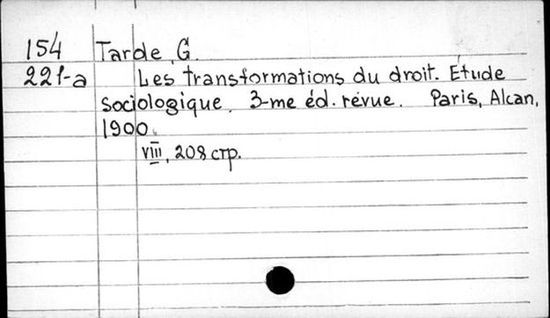 154 Tarde, G.
221-a Les transformations du droit. Étude
sociologique. 3-me éd. révue. Paris, Alcan,
1900.
VIII, 208 стр.